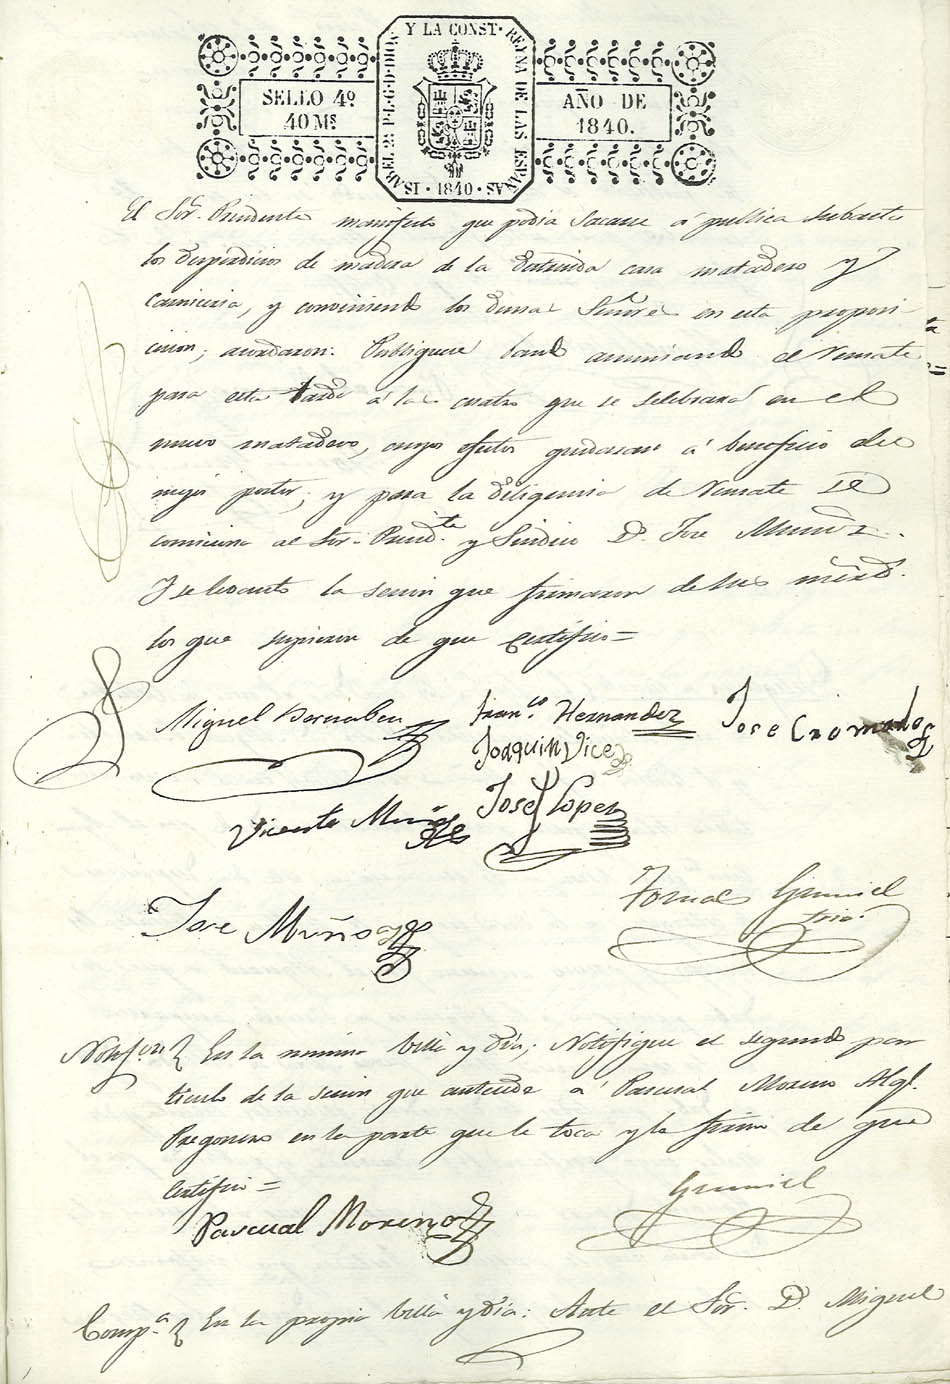 ISABEL 2ª P·L·G·D·DIOS Y LA CONST· REYNA DE LAS ESPAÑAS · 1840 ·
SELLO 4º
40 Ms
AÑO DE
1840.
El Sor. Presidente manifesto que podia sacarse á publica subasta
los desperdicios de madera de la derruida casa matadero y
Carniceria, y conviniendo los demas Señores en esta proposi-
cicion; acordaron: Publiquese bando anunciando el Remate
para esta tarde á las cuatro que se selebrará en el
nuevo matadero, cuyos efectos quedaran á beneficio del
mejor postor; y para la diligencia de Remate se
comiciona al Sor. Presid.te y Sindico D. Jose Muñoz.
Y se levanto la secion que firmaron de sus mrds.
los que supieron de que certifico=
Miguel Bernabeu
Fran.co Hernandez
Jose Cromados
Joaquin Vice
Vicente Muñoz
Jose Lopez
Jose Muñoz
Tomas Gumiel
Srio.
Notifon En la misma Villa y dia; Notifique el segundo par
ticulo de la secion que antecede á Pascual Moreno Algl.
Pregonero en la parte que le toca y la firma de que
certifico=
Gumiel
Pascual Moreno
Comp.a En la propia Villa y dia: Ante el Sor. D. Miguel